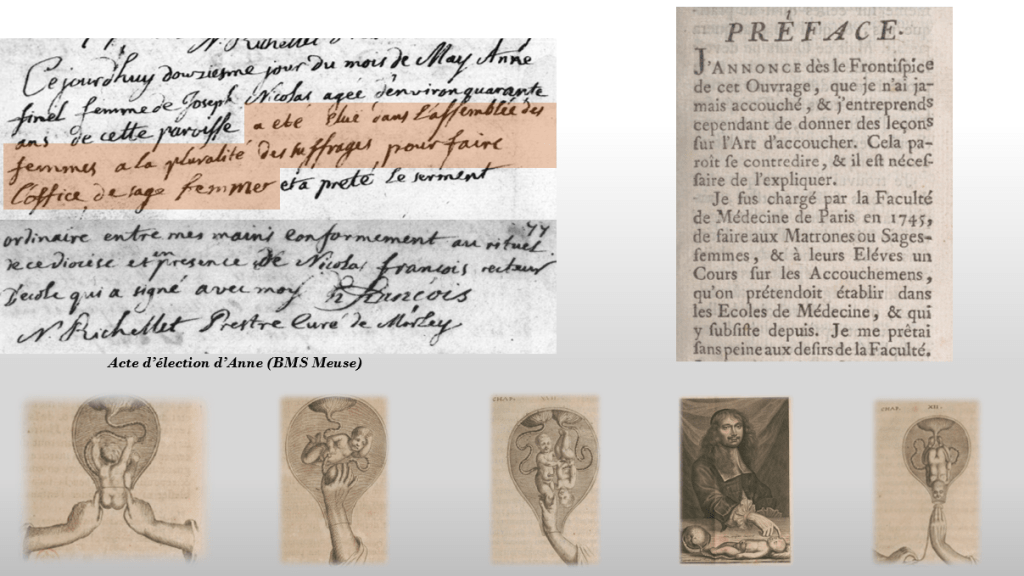 N. Richellet
Cejourd'huy douzieme jour du mois de May Anne
finel femme de Joseph Nicolas agée d'environ quarante
ans de cette paroisse a eté élue dans L'assemblée des
femmes a la pluralité des suffrages pour faire
L'office de sage femmer et a prété Le serment
77
ordinaire entre mes mains Conformement au rituel
de ce diocése et en presence de Nicolas françois recteur
D'école qui a signé avec moy N François
N. Richellet Prestre Curé de Morley
Acte d'élection d'Anne (BMS Meuse)
PRÉFACE.
J'ANNONCE dès le Frontispice
de cet Ouvrage, que je n'ai ja-
mais accouché, & j'entreprends
cependant de donner des leçons
sur l'Art d'accoucher. Cela pa-
roît se contredire, & il est néces-
saire de l'expliquer.
Je fus chargé par la Faculté
de Médecine de Paris en 1745,
de faire aux Matrones ou Sages-
femmes, & à leurs Eléves un
Cours sur les Accouchemens,
qu'on prétendoit établir dans
les Ecoles de Médecine, & qui
y subsiste depuis. Je me prêtai
sans peine aux desirs de la Faculté.
CHAP.
CHAP. XII.